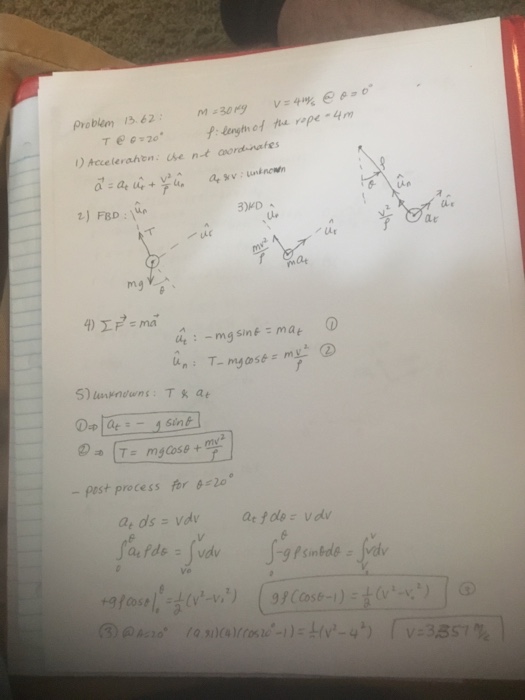 Problem 13.62: m = 30 kg v = 4 m/s @ θ = 0°
T @ θ = 20° ρ: length of the rope = 4m
1) Acceleration: Use n-t coordinates
a⃗ = a_t û_t + v²/ρ û_n a_t & v: unknown
ρ
θ
û_n
û_t
v²/ρ
a_t
2) FBD: û_n
T
û_t
mg
θ
3) KD
û_n
û_t
mv²/ρ
ma_t
4) ΣF⃗ = ma⃗
û_t: -mg sinθ = ma_t ①
û_n: T - mg cosθ = m v²/ρ ②
5) unknowns: T & a_t
① ⇒ a_t = - g sinθ
② ⇒ T = mg cosθ + mv²/ρ
- post process for θ = 20°
a_t ds = v dv a_t ρ dθ = v dv
∫₀^θ a_t ρ dθ = ∫_{v₀}^v v dv ∫₀^θ -gρ sinθ dθ = ∫_{v₀}^v v dv
+gρ cosθ|₀^θ = ½(v² - v₀²) gρ(cosθ - 1) = ½(v² - v₀²) ③
③ @ θ = 20° (9.81)(4)(cos20° - 1) = ½(v² - 4²) v = 3.357 m/s